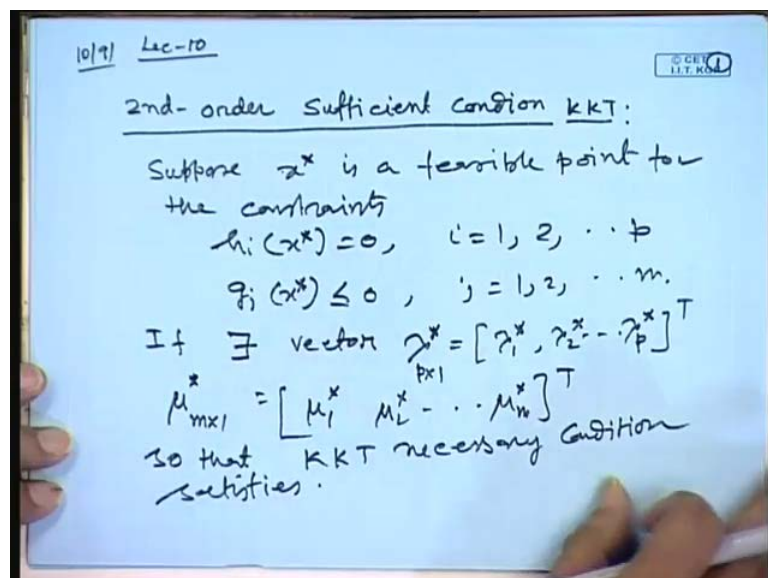 10/9/ Lec-10
© CET
I.I.T. KGP
1
2nd-order Sufficient Condion KKT:
Suppose x* is a feasible point for
the constraints
hi(x*) = 0, i = 1, 2, ·· p
gj(x*) ≤ 0, j = 1, 2, ·· m.
If ∃ vector λ*p×1 = [λ1*, λ2* -- ·λp*]T
μ*m×1 = [μ1* μ2* - ·· μm*]T
so that KKT necessary condition
satisties.